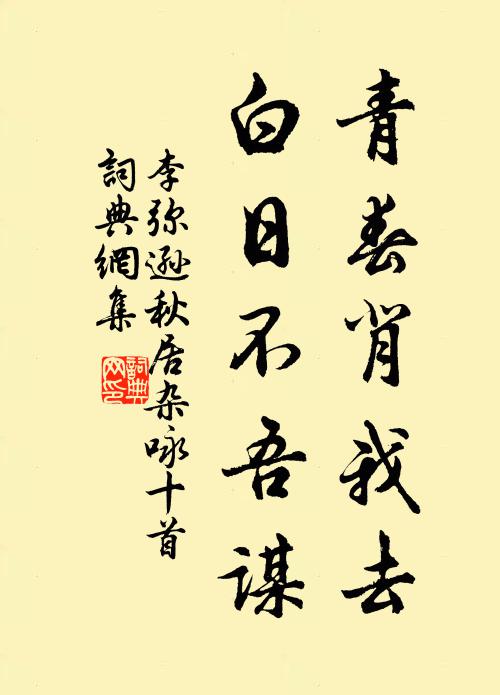 青春背我去
白日不吾謀
李弥遜秋居杂咏十首
詞典網集
詞典网印